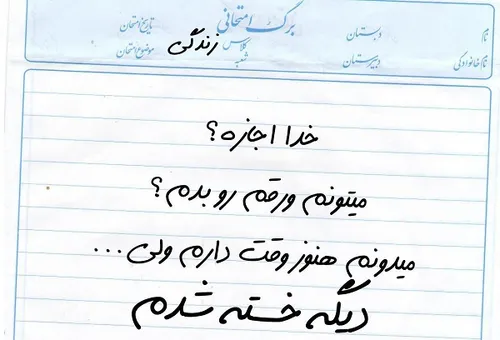 برگ امتحانی
نام
دبستان
کلاس
تاریخ امتحان
نام خانوادگی
دبیرستان
شعبه
موضوع امتحان
زندگی
خدا اجازه؟
میتونم ورقم رو بدم؟
میدونم هنوز وقت دارم ولی...
دیگه خسته شدم